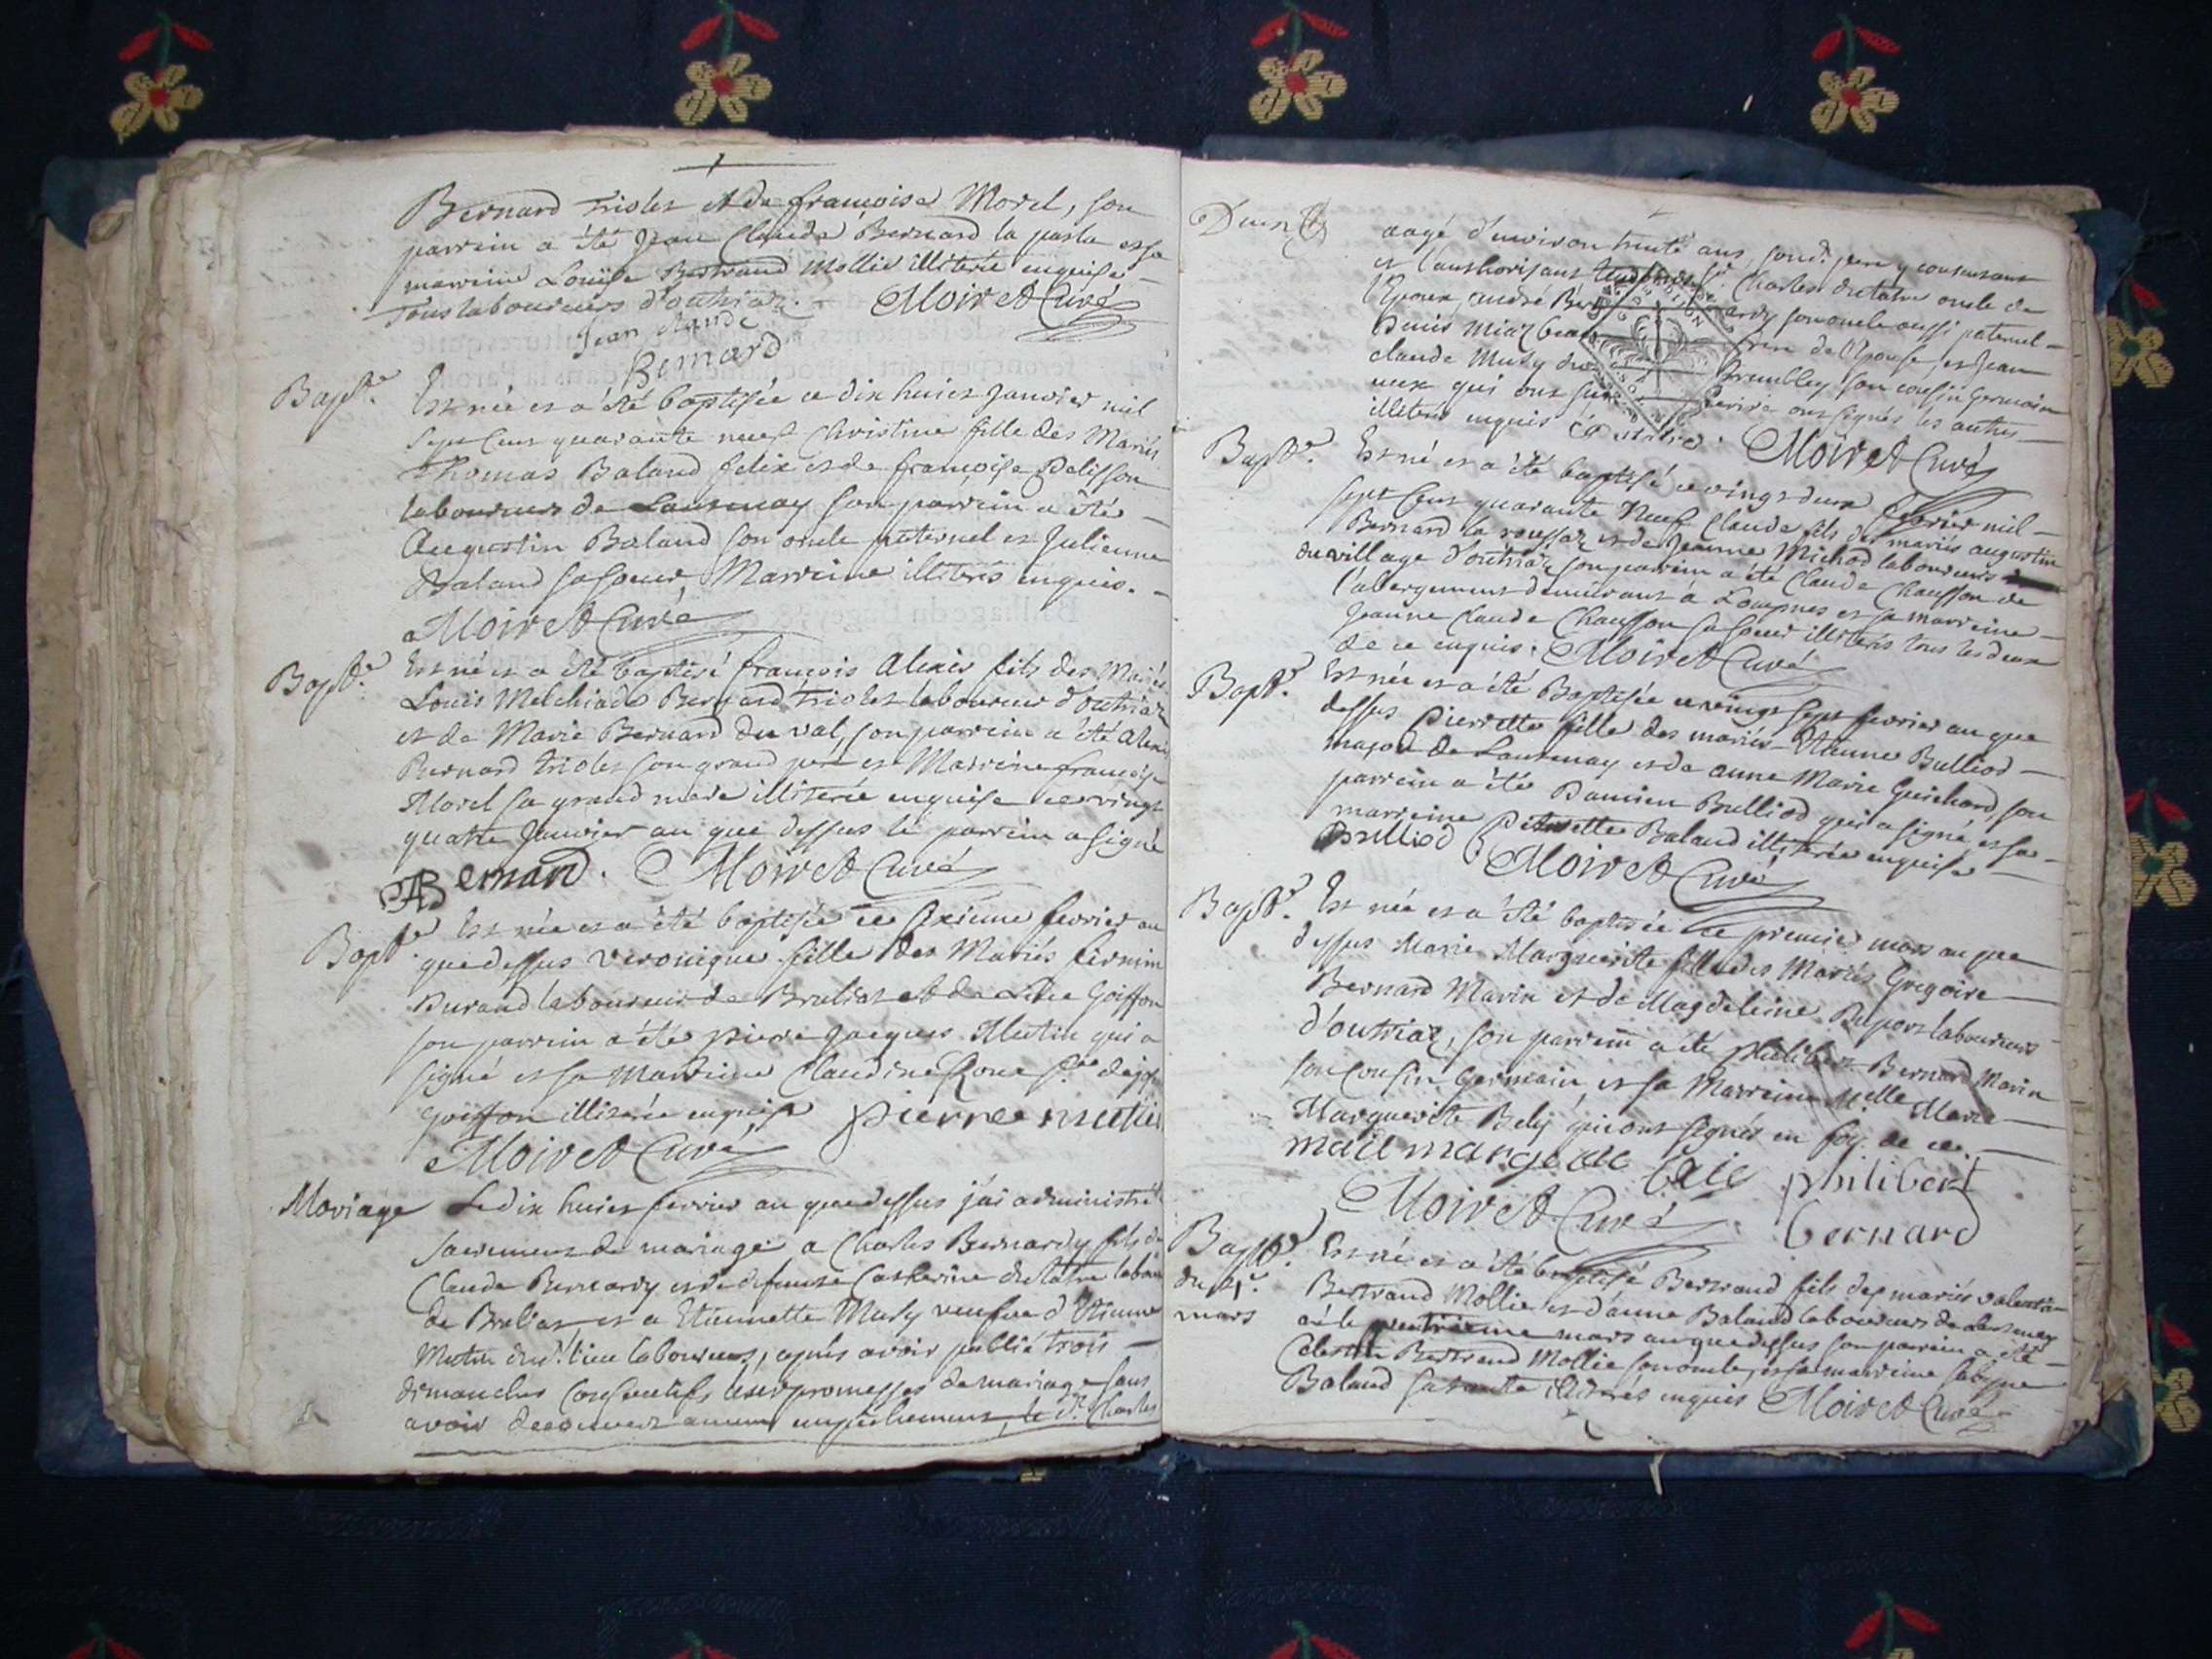 Bernard triolet et de françoise Morel, son
parrein a été Jean Claude Bernard la pasta et sa
marreine Louise Bertrand Mollie illiterée enquise
Tous laboureurs d'outriaz. Moiret Curé
Jean claude
Bernard
Bapt.e Est née et a été baptisée ce dix huict Janvier mil
sept cent quarante neuf Christine fille des Mariés
Thomas Baland felix et de françoise Pelisson
laboureurs de Lantenay son parrein a été
Augustin Baland son oncle paternel et Julienne
Baland sa soeur Marreine illiterés enquis.
Moiret Curé
Bapt.e Est né et a été baptisé françois Alexis fils des Mariés
Louis Melchiade Bernard triolet laboureur d'outriaz
et de Marie Bernard du val, son parrein a été Alexis
Bernard triolet son grand pere et Marreine françoise
Morel sa grand mere illiterée enquise ce vingt
quatre Janvier an que dessus le parrein a signé
ABernard. Moiret Curé
Bapt.e Est née et a été baptisée ce sixieme fevrier an
que dessus Veronique fille des Mariés firmin
Durand laboureur de Brulias et de Goiffon
son parrein a été pierre Jacques Mutin qui a
signé et sa Marreine Claudine
Goiffon illiterée enquise pierre mutin
Moiret Curé
Mariage Le dix huict fevrier an que dessus j'ai administré
sacrement de mariage a Charles Bernardy fils de
Claude Bernardy et de defunte Catherine
de Brulias et a Etiennette Musy veufve d'Etienne
Mutin dud.t lieu laboureurs, après avoir publié trois
dimanches consecutifs leurs promesses de mariage sans
avoir decouvert aucun empechement, le d.t Charles
aagé d'environ trente ans, sond.t pere y consentant
et l'authorisant Charles oncle de
l'Epoux, andré Bernardy son oncle aussi paternel
Denis frere de l'Epouse, et Jean
claude Musy Brunbley son cousin germain
ceux qui ont sçu ecrire ont signés les autres
illiterés enquis Moiret Curé
Bapt.e Est né et a été baptisé ce vingt deux fevrier mil
sept cent quarante Neuf Claude fils des mariés augustin
Bernard la roussaz et de Jeanne Michod laboureurs
du village d'outriaz son parrein a été Claude Chausson de
l'abergement demeurant a et sa marreine
Jeanne Claude Chausson sa soeur illiterés tous les deux
de ce enquis. Moiret Curé
Bapt.e Est née et a été Baptisée ce vingt sept fevrier an que
dessus Pierrette fille des mariés Etienne Bulliod
maçon de Lantenay et de anne Marie Guichard, son
parrein a été Damien Bulliod qui a signé, et sa
marreine Pierrette Baland illiterée enquise
Bulliod Moiret Curé
Bapt.e Est née et a été baptisée ce premier mars an que
dessus Marie Marguerite fille des Mariés Gregoire
Bernard Marin et de Magdeleine Duport laboureurs
d'outriaz, son parrein a été philibert Bernard Marin
son cousin germain, et sa Marreine Marie
Marguerite Bely qui ont signés en foy de ce.
philibert
Moiret Curé bernard
Bapt.e Est né et a été baptisé Bertrand fils des mariés valentin
du 4.e Bertrand Mollie et d'anne Baland laboureurs de Lantenay
mars ce quatrieme mars an que dessus son parrein a été
Celestin Bertrand Mollie son oncle, et sa marreine
Baland sa tante illiterés enquis Moiret Curé